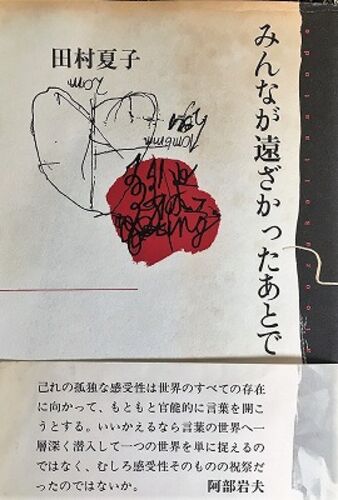 田村夏子
みんなが遠ざかったあとで
己れの孤独な感受性は世界のすべての存在
に向かって、もともと官能的に言葉を開こ
うとする。いいかえるなら言葉の世界へ一
層深く潜入して一つの世界を単に捉えるの
ではなく、むしろ感受性そのものの祝祭だ
ったのではないか。
阿部岩夫